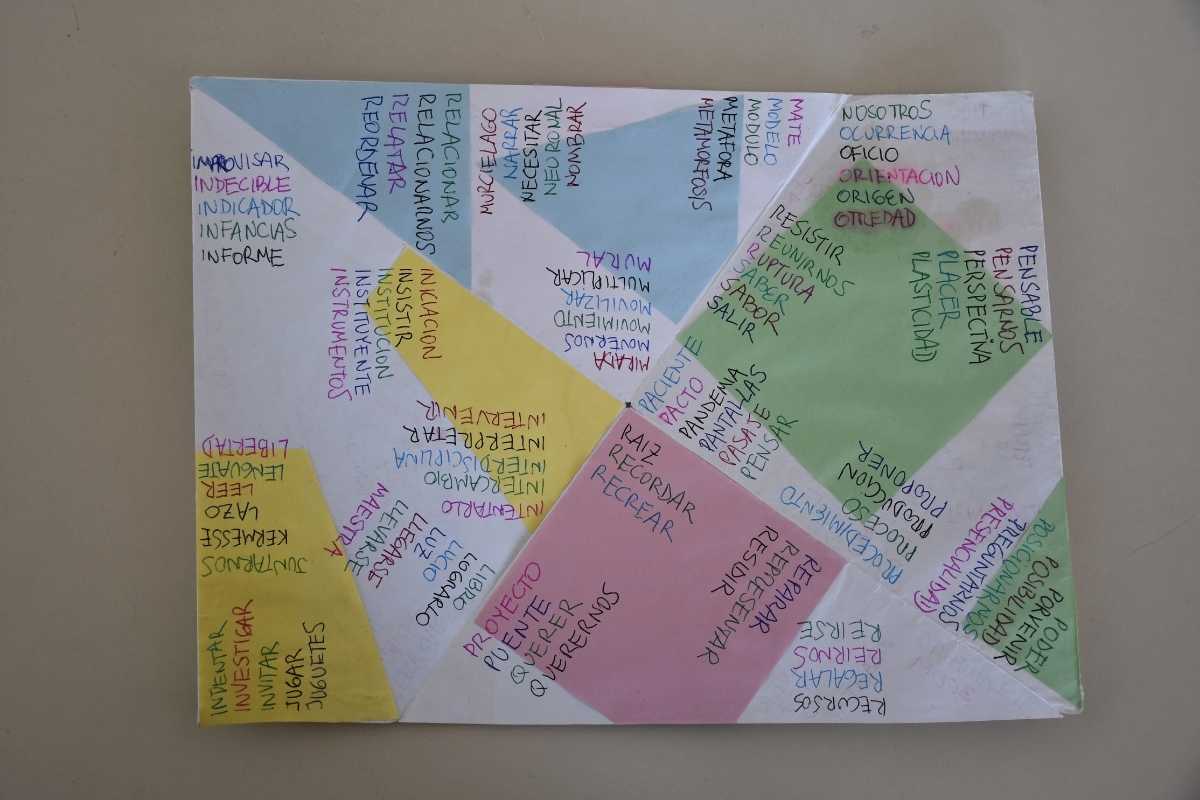 IMPROVISAR
INDECIBLE
INDICADOR
INFANCIAS
INFORME
INICIACION
INSISTIR
INSTITUCION
INSTITUYENTE
INSTRUMENTOS
INTENTARLO
INTERCAMBIO
INTERDISCIPLINA
INTERPRETAR
INTERVENIR
INVESTIGAR
INVITAR
JUGAR
JUGUETES
JUNTARNOS
KERMESSE
LAZO
LEER
LENGUAJE
LIBERTAD
LIBRO
LOGRARLO
LUCIO
LUZ
LLEGARSE
LLEVARSE
MAESTRA
MATE
MODELO
MODULO
METAFORA
METAMORFOSIS
MIRADA
MOVERNOS
MOVIMIENTO
MOVILIZAR
MULTIPLICAR
MURAL
MURCIELAGO
NARRAR
NECESITAR
NEURONAL
NOMBRAR
NOSOTROS
OCURRENCIA
OFICIO
ORIENTACION
ORIGEN
OTREDAD
PACIENTE
PACTO
PANDEMIA
PANTALLAS
PASAJE
PENSAR
PENSABLE
PENSARNOS
PERSPECTIVA
PLACER
PLASTICIDAD
PODER
PORVENIR
POSIBILIDAD
POSICIONARNOS
PREGUNTARNOS
PRESENCIALIDAD
PROCEDIMIENTO
PROCESO
PRODUCCION
PROPONER
PROYECTO
PUENTE
QUERER
QUERERNOS
RAIZ
RECORDAR
RECREAR
RECURSOS
REGALAR
REIRNOS
REIRSE
RELACIONAR
RELACIONARNOS
RELATAR
REORDENAR
REPARAR
REPRESENTAR
RESIDIR
RESISTIR
REUNIRNOS
RUPTURA
SABER
SABOR
SALIR